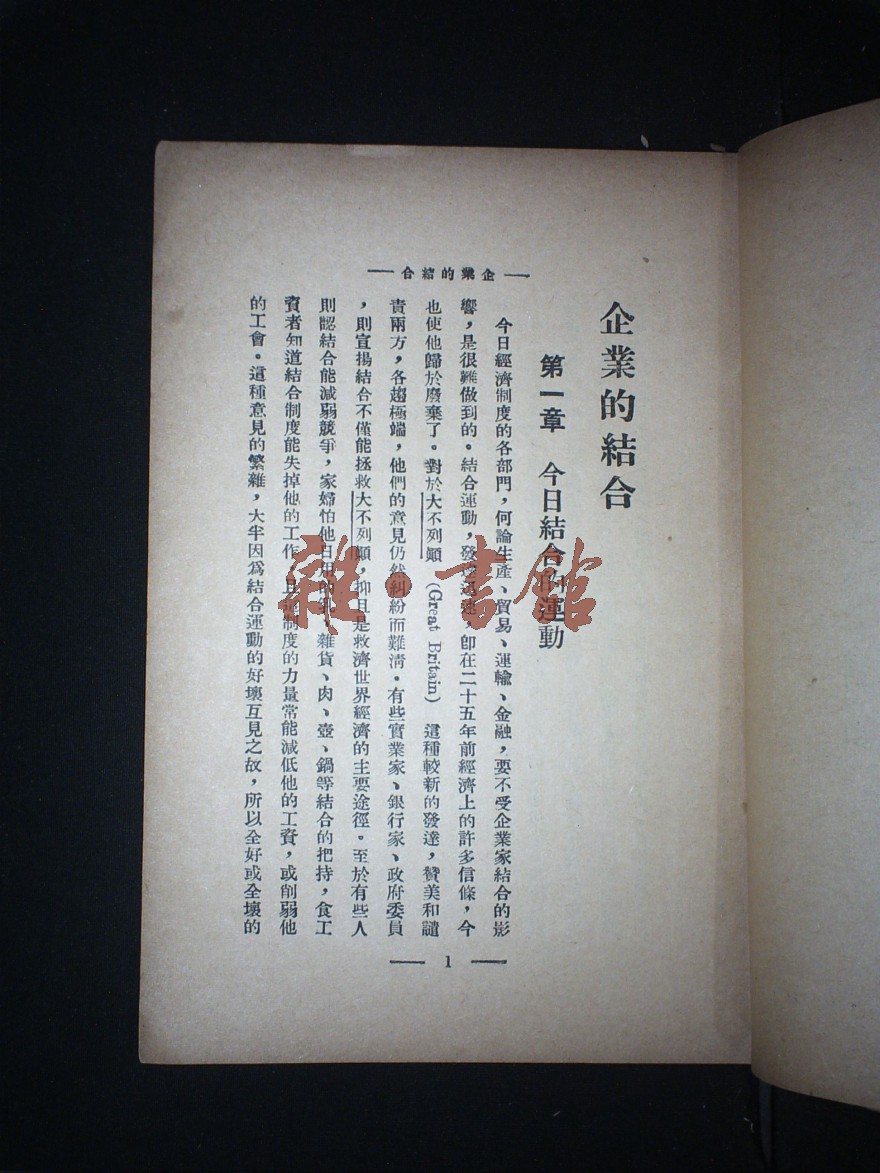 企業的結合
企業的結合
第一章 今日結合的運動
今日經濟制度的各部門，何論生產、貿易、運輸、金融，要不受企業家結合的影
響，是很難做到的。結合運動，發達迅速，卽在二十五年前經濟上的許多信條，今
也使他歸於廢棄了。對於大不列顚 (Great Britain) 這種較新的發達，贊美和譴
責兩方，各趨極端，他們的意見仍然糾紛而難淸。有些實業家、銀行家、政府委員
，則宣揚結合不僅能拯救大不列顚，抑且是救濟世界經濟的主要途徑。至於有些人
則認結合能減弱競爭，家婦怕他日用的乳、雜貨、肉、壺、鍋等結合的把持，食工
資者知道結合制度能失掉他的工作，且這制度的力量常能減低他的工資，或削弱他
的工會。這種意見的繁雜，大半因爲結合運動的好壞互見之故，所以全好或全壞的
1
雜·書館